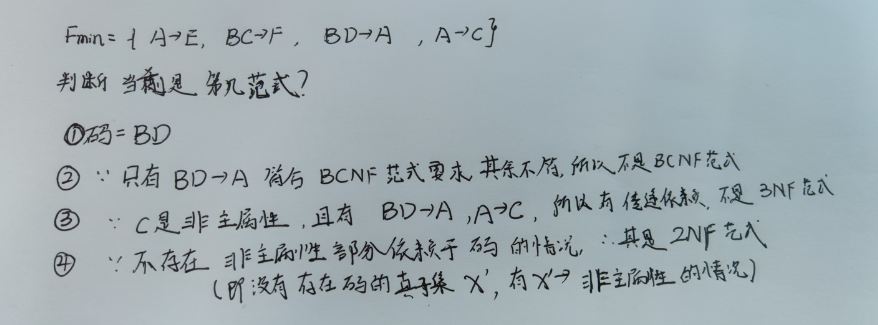 Fmin = { A→E, BC→F, BD→A , A→C}
判断当前是第几范式?
①码=BD
② ∵ 只有 BD→A 符合 BCNF 范式要求 其余不符, 所以不是BCNF范式
③ ∵ C是非主属性, 且有 BD→A, A→C, 所以有传递依赖, 不是3NF范式
④ ∵ 不存在 非主属性部分依赖于码的情况, ∴其是2NF范式
(即没有存在码的真子集X', 有X'→非主属性的情况)